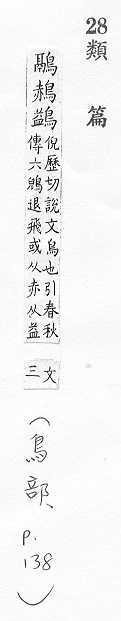 28 類篇
鶂⿰赤鳥鷁
倪歷切說文鳥也引春秋
傳六鶂退飛或从赤从益
文
三
(鳥部、p.138)